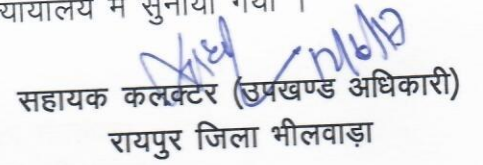 न्यायालय में सुनाया गया ।
सहायक कलक्टर (उपखण्ड अधिकारी)
रायपुर जिला भीलवाड़ा